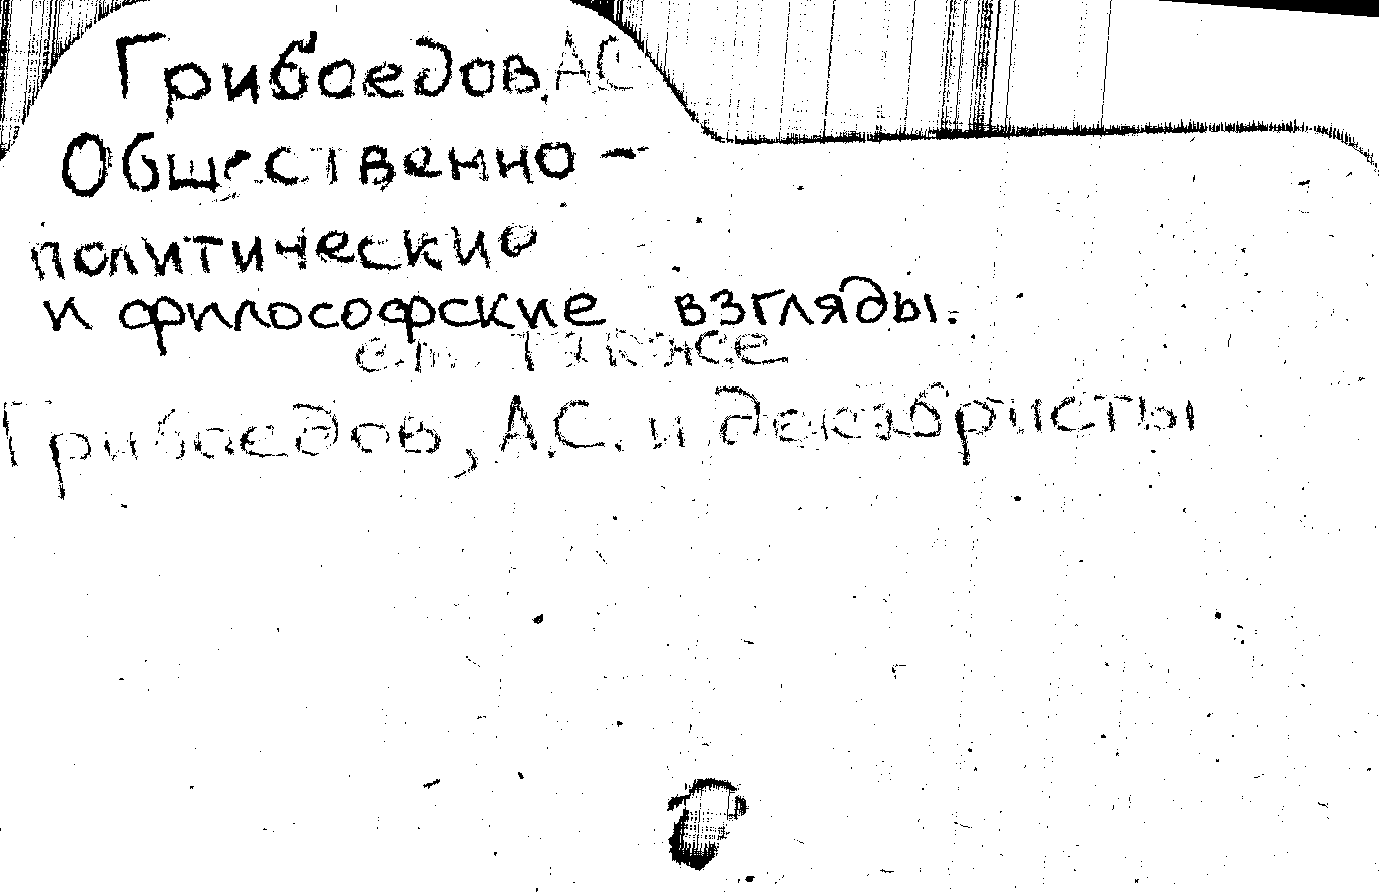 Грибоедов, АС
Общественно -
политические
и философские взгляды.
см. также
Грибоедов, А.С. и декабристы